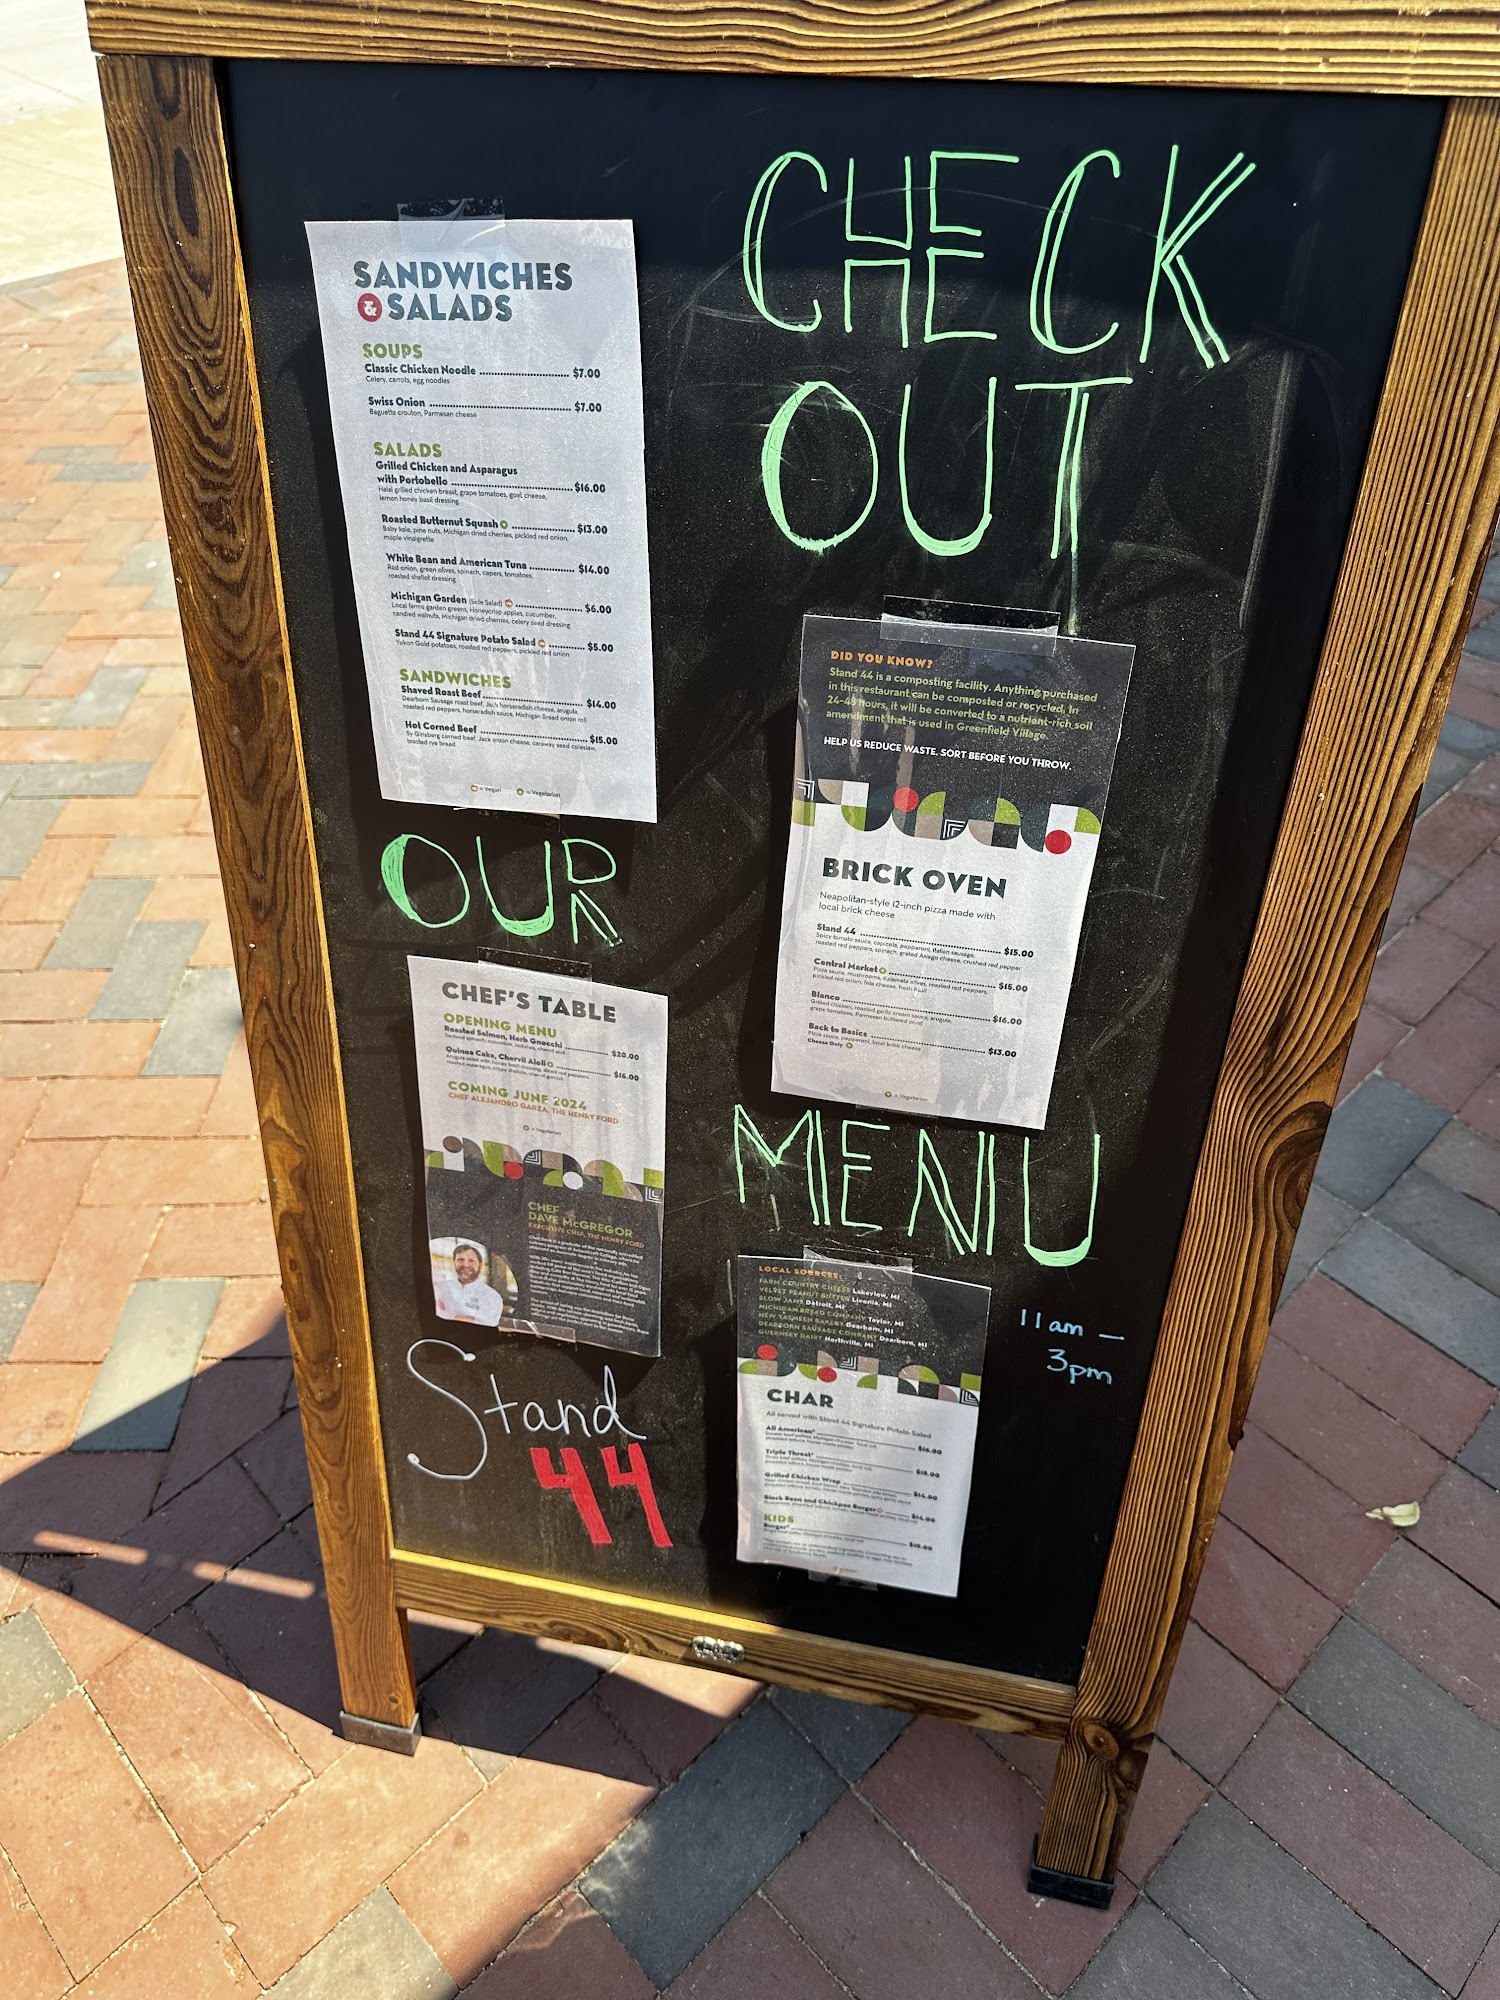 CHECK
OUT
SANDWICHES
& SALADS
SOUPS
Classic Chicken Noodle $7.00
Celery, carrots, egg noodles
Swiss Onion $7.00
Baguette crouton, Parmesan cheese
SALADS
Grilled Chicken and Asparagus
with Portobello $16.00
Halal grilled chicken breast, grape tomatoes, goat cheese,
lemon honey basil dressing
Roasted Butternut Squash $13.00
Baby kale, pine nuts, Michigan dried cherries, pickled red onion,
maple vinaigrette
White Bean and American Tuna $14.00
Red onion, green olives, spinach, capers, tomatoes,
roasted shallot dressing
Michigan Garden (Side Salad) $6.00
Local farms garden greens, Honeycrisp apples, cucumber,
candied walnuts, Michigan dried cherries, celery seed dressing
Stand 44 Signature Potato Salad $5.00
Yukon Gold potatoes, roasted red peppers, pickled red onion
SANDWICHES
Shaved Roast Beef $14.00
Dearborn Sausage roast beef, Jack horseradish cheese, arugula,
roasted red peppers, horseradish sauce, Michigan Bread onion roll
Hot Corned Beef $15.00
Sy Ginsberg corned beef, Jack onion cheese, caraway seed coleslaw,
toasted rye bread
= Vegan = Vegetarian
DID YOU KNOW?
Stand 44 is a composting facility. Anything purchased
in this restaurant can be composted or recycled. In
24-48 hours, it will be converted to a nutrient-rich soil
amendment that is used in Greenfield Village.
HELP US REDUCE WASTE. SORT BEFORE YOU THROW.
BRICK OVEN
Neapolitan-style 12-inch pizza made with
local brick cheese
Stand 44 $15.00
Spicy tomato sauce, capicola, pepperoni, Italian sausage,
roasted red peppers, spinach, grated Asiago cheese, crushed red pepper
Central Market $15.00
Pizza sauce, mushrooms, Kalamata olives, roasted red peppers,
pickled red onion, feta cheese, fresh basil
Blanco $16.00
Grilled chicken, roasted garlic cream sauce, arugula,
grape tomatoes, Parmesan buttered crust
Back to Basics $13.00
Pizza sauce, pepperoni, local brick cheese
Cheese Only
= Vegetarian
OUR
CHEF'S TABLE
OPENING MENU
Roasted Salmon, Herb Gnocchi $20.00
Quinoa Cake, Chervil Aioli $16.00
COMING JUNE 2024
CHEF ALEJANDRO GARZA, THE HENRY FORD
= Vegetarian
CHEF
DAVE McGREGOR
EXECUTIVE CHEF, THE HENRY FORD
MENU
LOCAL SOURCES:
FARM COUNTRY CHEESE Lakeview, MI
VELVET PEANUT BUTTER Livonia, MI
SLOW JAMS Detroit, MI
MICHIGAN BREAD COMPANY Taylor, MI
NEW YASMEEN BAKERY Dearborn, MI
DEARBORN SAUSAGE COMPANY Dearborn, MI
GUERNSEY DAIRY Northville, MI
CHAR
All served with Stand 44 Signature Potato Salad
All American* $16.00
Triple Threat* $18.00
Grilled Chicken Wrap $14.00
Black Bean and Chickpea Burger $14.00
KIDS
Burger* $10.00
11am –
3pm
Stand
44